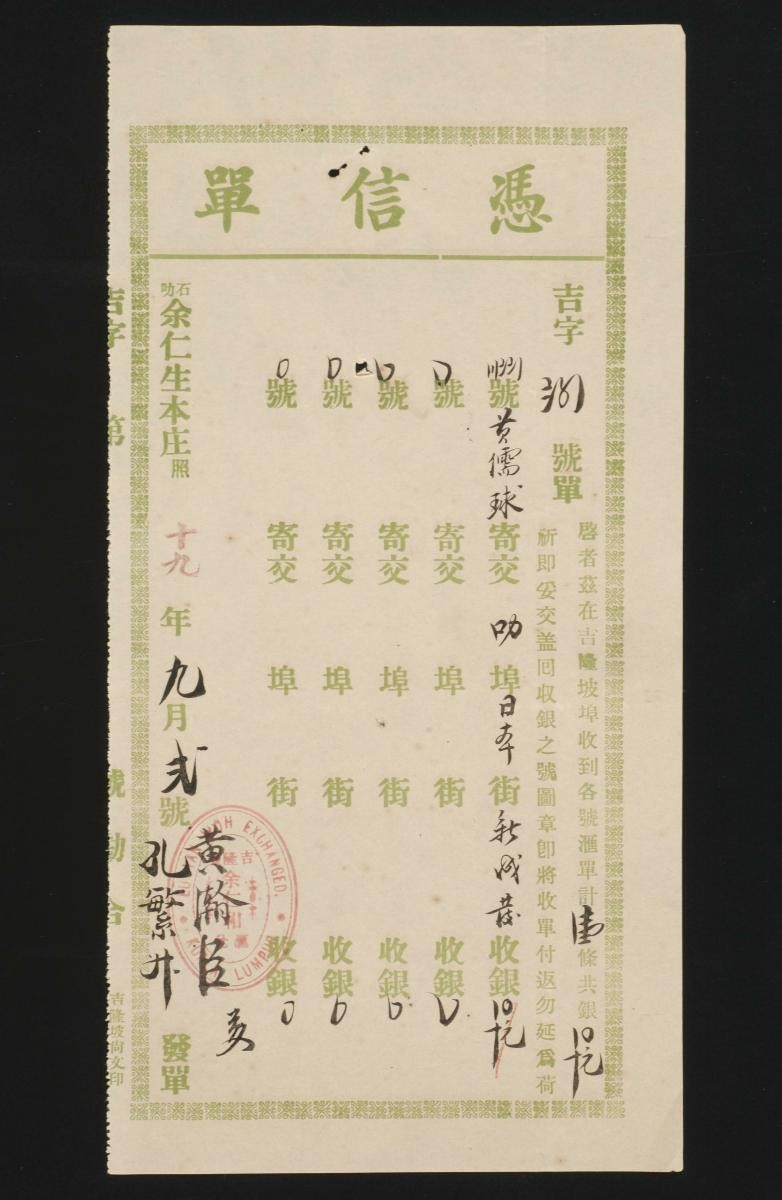 憑信單
吉字 號單
啓者茲在吉隆坡埠收到各號滙單計 條共銀
祈即妥交盖囘收銀之號圖章卽將收單付返勿延爲荷
號黃儒球寄交叻埠日本街新成發收銀
號 寄交 埠 街 收銀
號 寄交 埠 街 收銀
號 寄交 埠 街 收銀
號 寄交 埠 街 收銀
石叻余仁生本庄照 十九年九月弍號 發單
黄瀚臣
孔繁升
吉字 第 號勘合
吉隆坡尚文印
EXCHANGED.
LUMPUR